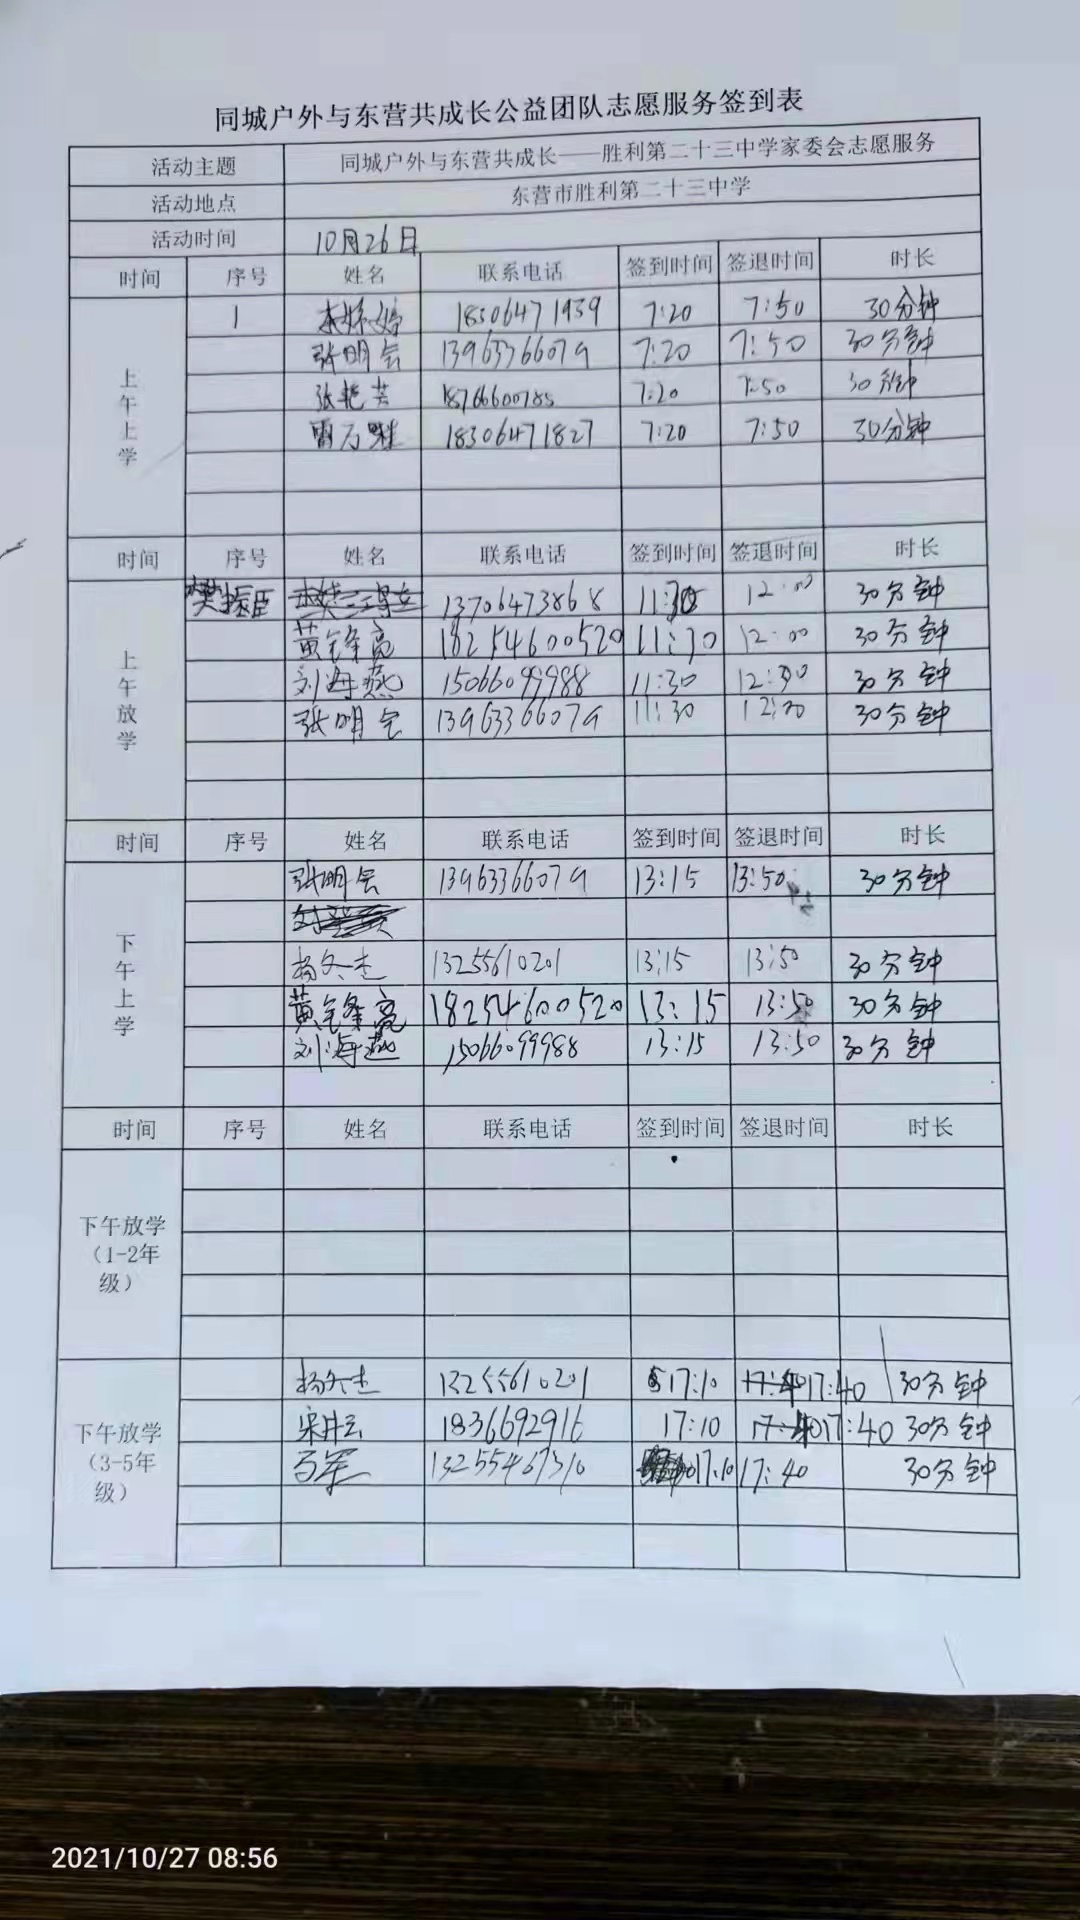 同城户外与东营共成长公益团队志愿服务签到表
活动主题 同城户外与东营共成长——胜利第二十三中学家委会志愿服务
活动地点 东营市胜利第二十三中学
活动时间 10月26日
时间 序号 姓名 联系电话 签到时间 签退时间 时长
上午上学
1 18306471939 7:20 7:50 30分钟
张明会 13963366079 7:20 7:50 30分钟
张艳芸 18766600785 7:20 7:50 30分钟
18306471827 7:20 7:50 30分钟
时间 序号 姓名 联系电话 签到时间 签退时间 时长
上午放学
樊振臣 13706473868 11:30 12:00 30分钟
黄锋亮 18254600520 11:30 12:00 30分钟
刘海燕 15066099988 11:30 30分钟
张明会 13963366079 11:30 30分钟
时间 序号 姓名 联系电话 签到时间 签退时间 时长
下午上学
张明会 13963366079 13:15 13:50 30分钟
杨冬杰 13255610201 13:15 13:50 30分钟
黄锋亮 18254600520 13:15 13:50 30分钟
刘海燕 15066099988 13:15 13:50 30分钟
时间 序号 姓名 联系电话 签到时间 签退时间 时长
下午放学
（1-2年
级）
下午放学
（3-5年
级）
杨冬杰 13255610201 17:10 17:40 30分钟
宋井云 1836692916 17:10 17:40 30分钟
13255467310 17:10 17:40 30分钟
2021/10/27 08:56